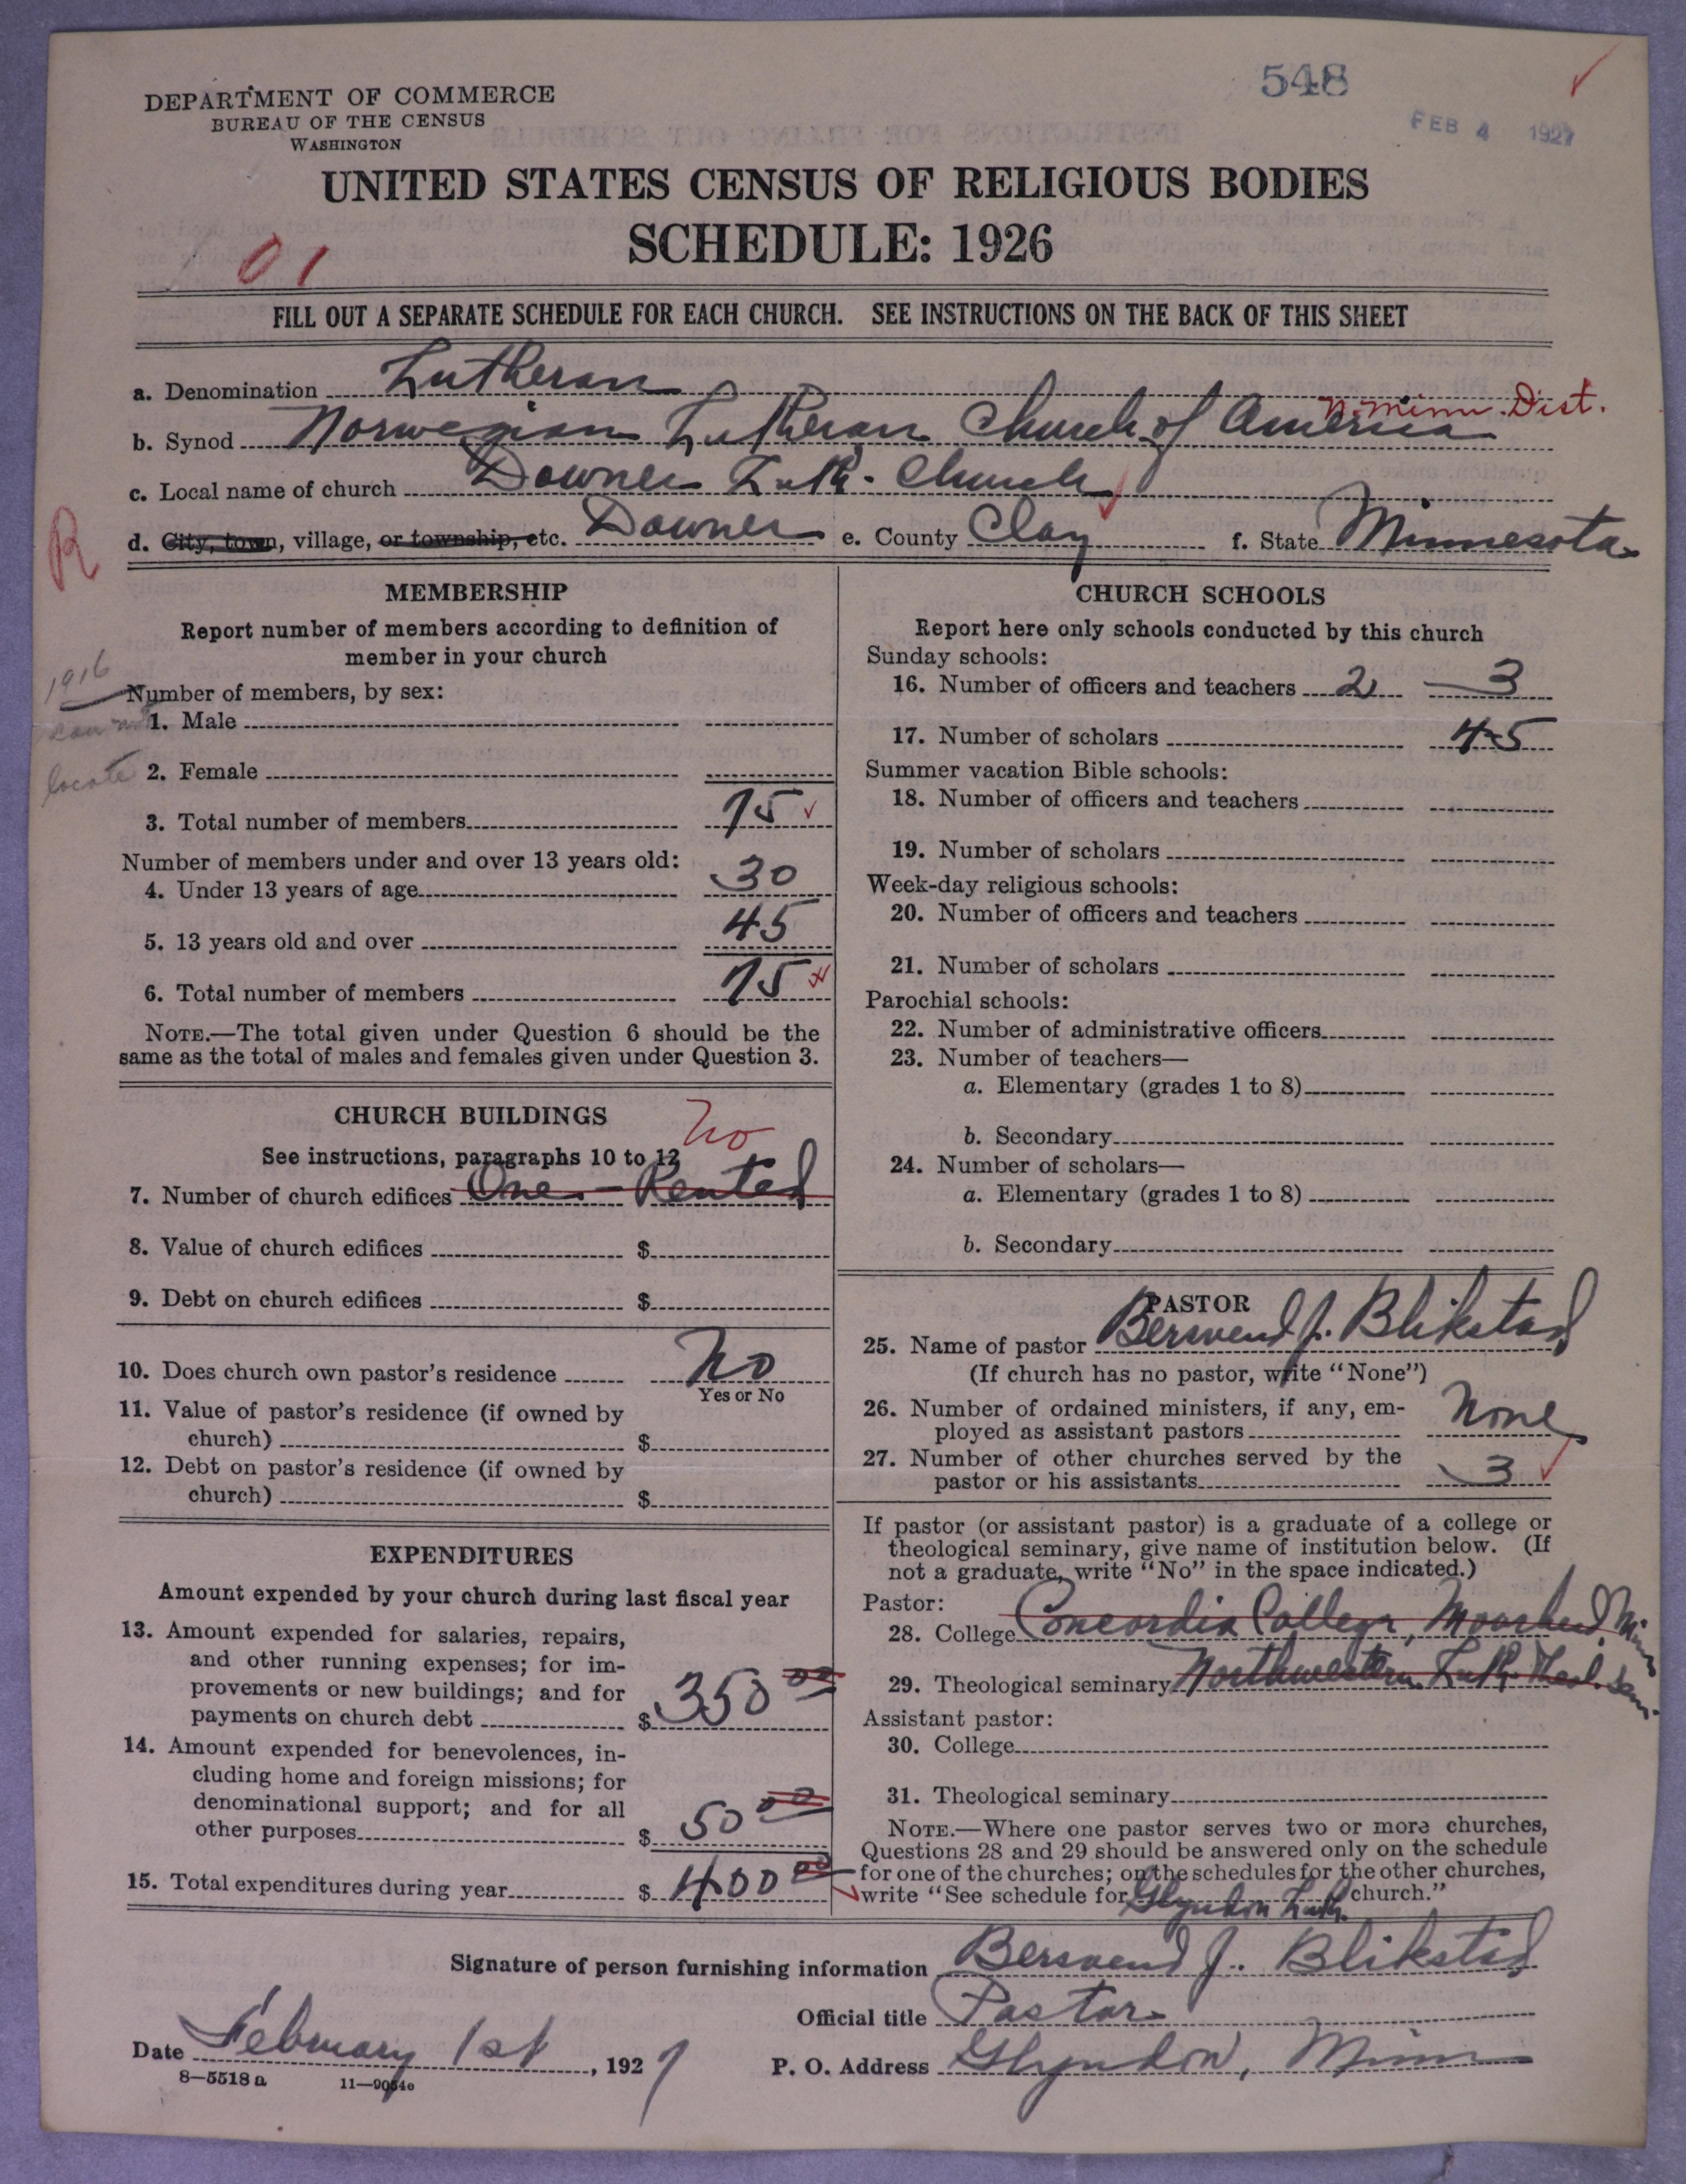 548
FEB 4 1927
DEPARTMENT OF COMMERCE
BUREAU OF THE CENSUS
WASHINGTON
UNITED STATES CENSUS OF RELIGIOUS BODIES
SCHEDULE: 1926
01
FILL OUT A SEPARATE SCHEDULE FOR EACH CHURCH. SEE INSTRUCTIONS ON THE BACK OF THIS SHEET
a. Denomination Lutheran
N. Minn. Dist.
b. Synod Norwegian Lutheran Church of America
c. Local name of church Downer Luth. Church
R
d. City, town, village, or township, etc. Downer e. County Clay f. State Minnesota
MEMBERSHIP
Report number of members according to definition of
member in your church
1916
can not
locate
Number of members, by sex:
1. Male
2. Female
3. Total number of members 75
Number of members under and over 13 years old:
4. Under 13 years of age 30
5. 13 years old and over 45
6. Total number of members 75
NOTE.—The total given under Question 6 should be the
same as the total of males and females given under Question 3.
CHURCH BUILDINGS
No
See instructions, paragraphs 10 to 12
7. Number of church edifices One - Rented
8. Value of church edifices $
9. Debt on church edifices $
10. Does church own pastor's residence No
Yes or No
11. Value of pastor's residence (if owned by
church) $
12. Debt on pastor's residence (if owned by
church) $
EXPENDITURES
Amount expended by your church during last fiscal year
13. Amount expended for salaries, repairs,
and other running expenses; for im-
provements or new buildings; and for
payments on church debt $ 350 00
14. Amount expended for benevolences, in-
cluding home and foreign missions; for
denominational support; and for all
other purposes $ 50 00
15. Total expenditures during year $ 400 00
CHURCH SCHOOLS
Report here only schools conducted by this church
Sunday schools:
16. Number of officers and teachers 2 3
17. Number of scholars 45
Summer vacation Bible schools:
18. Number of officers and teachers
19. Number of scholars
Week-day religious schools:
20. Number of officers and teachers
21. Number of scholars
Parochial schools:
22. Number of administrative officers
23. Number of teachers—
a. Elementary (grades 1 to 8)
b. Secondary
24. Number of scholars—
a. Elementary (grades 1 to 8)
b. Secondary
PASTOR
25. Name of pastor Bersvend J. Blikstad
(If church has no pastor, write "None")
26. Number of ordained ministers, if any, em-
ployed as assistant pastors None
27. Number of other churches served by the
pastor or his assistants 3
If pastor (or assistant pastor) is a graduate of a college or
theological seminary, give name of institution below. (If
not a graduate, write "No" in the space indicated.)
Pastor:
28. College Concordia College, Moorhead, Minn
29. Theological seminary Northwestern Luth. Theol. Sem.
Assistant pastor:
30. College
31. Theological seminary
NOTE.—Where one pastor serves two or more churches,
Questions 28 and 29 should be answered only on the schedule
for one of the churches; on the schedules for the other churches,
write "See schedule for Glyndon Luth. church."
Signature of person furnishing information Bersvend J. Blikstad
Official title Pastor
Date February 1st, 1927
P. O. Address Glyndon, Minn
8—5518 a 11—9054e